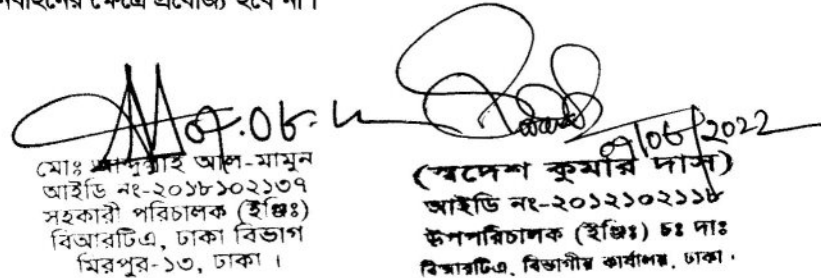 ক্ষেত্রে প্রযোজ্য হবে না।
০৭.০৮.২২
০৭/০৮/2022
মোঃ আব্দুল্লাহ আল-মামুন
আইডি নং-২০১৮১০২১৩৭
সহকারী পরিচালক (ইঞ্জিঃ)
বিআরটিএ, ঢাকা বিভাগ
মিরপুর-১৩, ঢাকা ।
(স্বদেশ কুমার দাস)
আইডি নং-২০১২১০২১১৮
উপপরিচালক (ইঞ্জিঃ) চঃ দাঃ
বিআরটিএ, বিভাগীয় কার্যালয়, ঢাকা ।